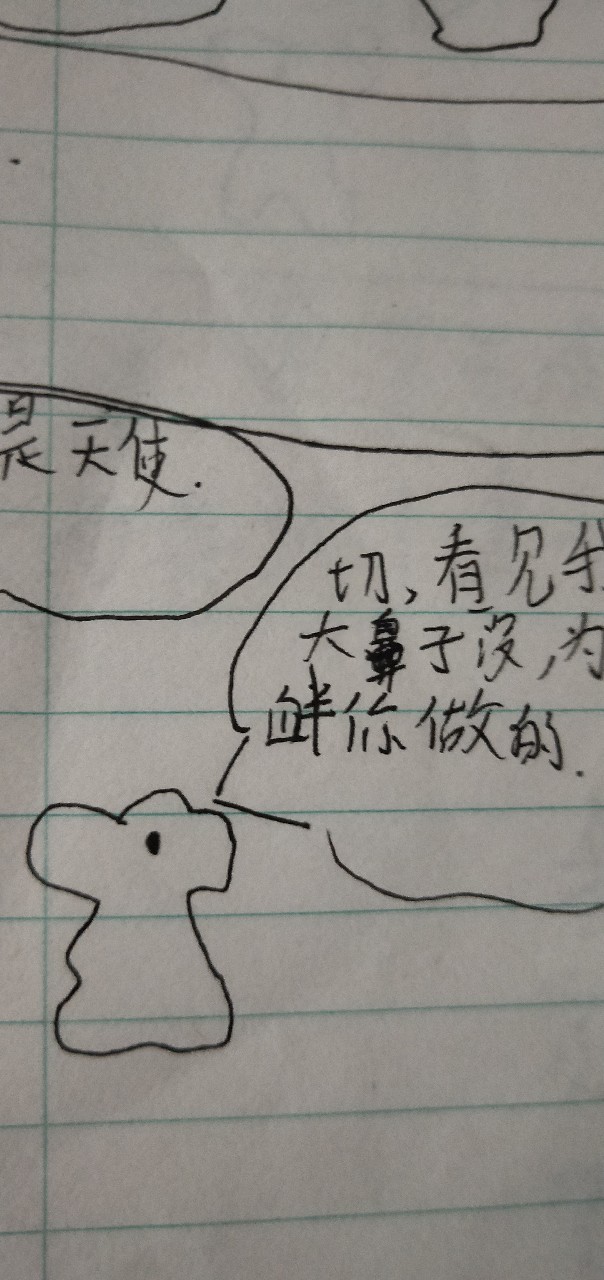 是天使.
切,看见我
大鼻子没,为
你做的.